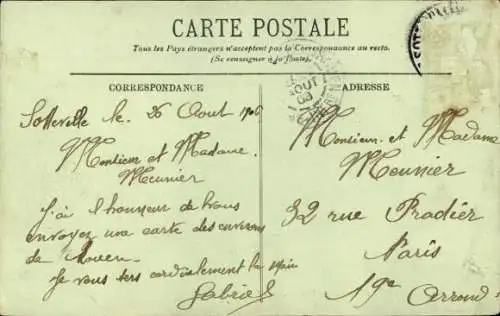 CARTE POSTALE
Tous les Pays étrangers n'acceptent pas la Correspondance au recto.
(Se renseigner à la Poste).
CORRESPONDANCE
Sotteville le. 26 Aout 1906
Monsieur et Madame.
Meunier
J'ai l'honneur de Vous
envoyez une carte des environs
de Rouen.
Je vous sers cordialement la Main
Gabriel
ADRESSE
Monsieur et Madame
Meunier
32 rue Pradier
Paris
19e Arrond
AOUT